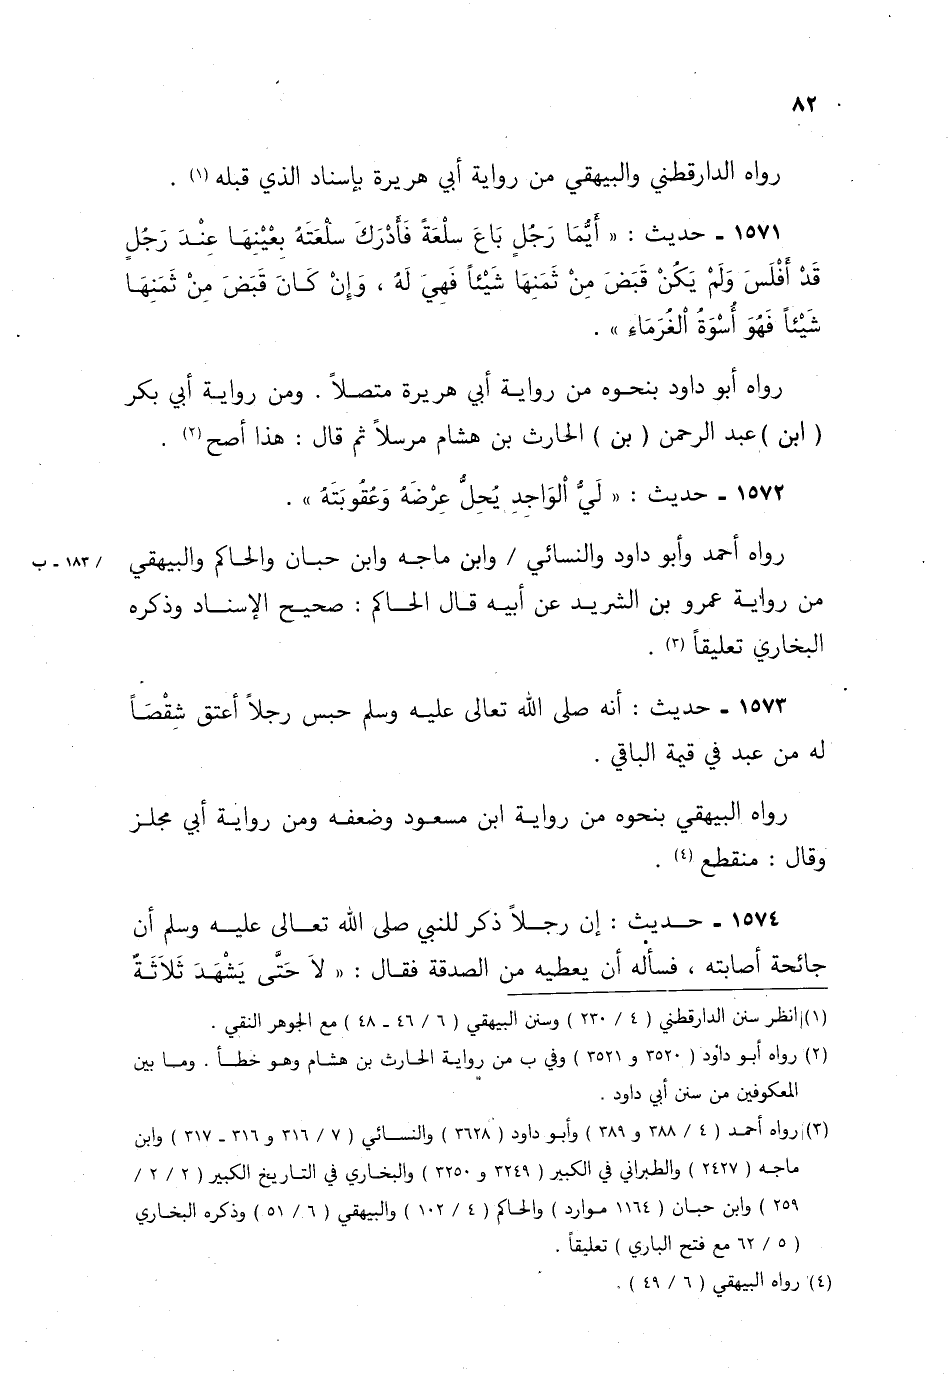 ٨٢
رواه الدارقطني والبيهقي من رواية أبي هريرة بإسناد الذي قبله (١) .
١٥٧١ ـ حديث : « أَيُّمَا رَجُلٍ بَاعَ سِلْعَةً فَأَدْرَكَ سِلْعَتَهُ بِعَيْنِهَا عِنْدَ رَجُلٍ
قَدْ أَفْلَسَ وَلَمْ يَكُنْ قَبَضَ مِنْ ثَمَنِهَا شَيْئاً فَهِيَ لَهُ ، وَإِنْ كَانَ قَبَضَ مِنْ ثَمَنِهَا
شَيْئاً فَهُوَ أُسْوَةُ الْغُرَمَاءِ » .
رواه أبو داود بنحوه من رواية أبي هريرة متصلاً . ومن رواية أبي بكر
( ابن ) عبد الرحمن ( بن ) الحارث بن هشام مرسلاً ثم قال : هذا أصح (٢) .
١٥٧٢ ـ حديث : « لَيُّ الْوَاجِدِ يُحِلُّ عِرْضَهُ وَعُقُوبَتَهُ » .
رواه أحمد وأبو داود والنسائي / وابن ماجه وابن حبان والحاكم والبيهقي / ١٨٣ ـ ب
من رواية عمرو بن الشريد عن أبيه قال الحاكم : صحيح الإسناد وذكره
البخاري تعليقاً (٣) .
١٥٧٣ ـ حديث : أنه صلى الله تعالى عليه وسلم حبس رجلاً أعتق شِقْصَاً
له من عبد في قيمة الباقي .
رواه البيهقي بنحوه من رواية ابن مسعود وضعفه ومن رواية أبي مجلز
وقال : منقطع (٤) .
١٥٧٤ ـ حديث : إن رجلاً ذكر للنبي صلى الله تعالى عليه وسلم أن
جائحة أصابته ، فسأله أن يعطيه من الصدقة فقال : « لاَ حَتَّى يَشْهَدَ ثَلاَثَةٌ
(١) انظر سنن الدارقطني ( ٤ / ٢٣٠ ) وسنن البيهقي ( ٦ / ٤٦ ـ ٤٨ ) مع الجوهر النقي .
(٢) رواه أبو داود ( ٣٥٢٠ و ٣٥٢١ ) وفي ب من رواية الحارث بن هشام وهو خطأ . وما بين
المعكوفين من سنن أبي داود .
(٣) رواه أحمد ( ٤ / ٣٨٨ و ٣٨٩ ) وأبو داود ( ٣٦٢٨ ) والنسائي ( ٧ / ٣١٦ و ٣١٦ ـ ٣١٧ ) وابن
ماجه ( ٢٤٢٧ ) والطبراني في الكبير ( ٣٢٤٩ و ٣٢٥٠ ) والبخاري في التاريخ الكبير ( ٢ / ٢ /
٢٥٩ ) وابن حبان ( ١١٦٤ موارد ) والحاكم ( ٤ / ١٠٢ ) والبيهقي ( ٦ / ٥١ ) وذكره البخاري
( ٥ / ٦٢ مع فتح الباري ) تعليقاً .
(٤) رواه البيهقي ( ٦ / ٤٩ ) .